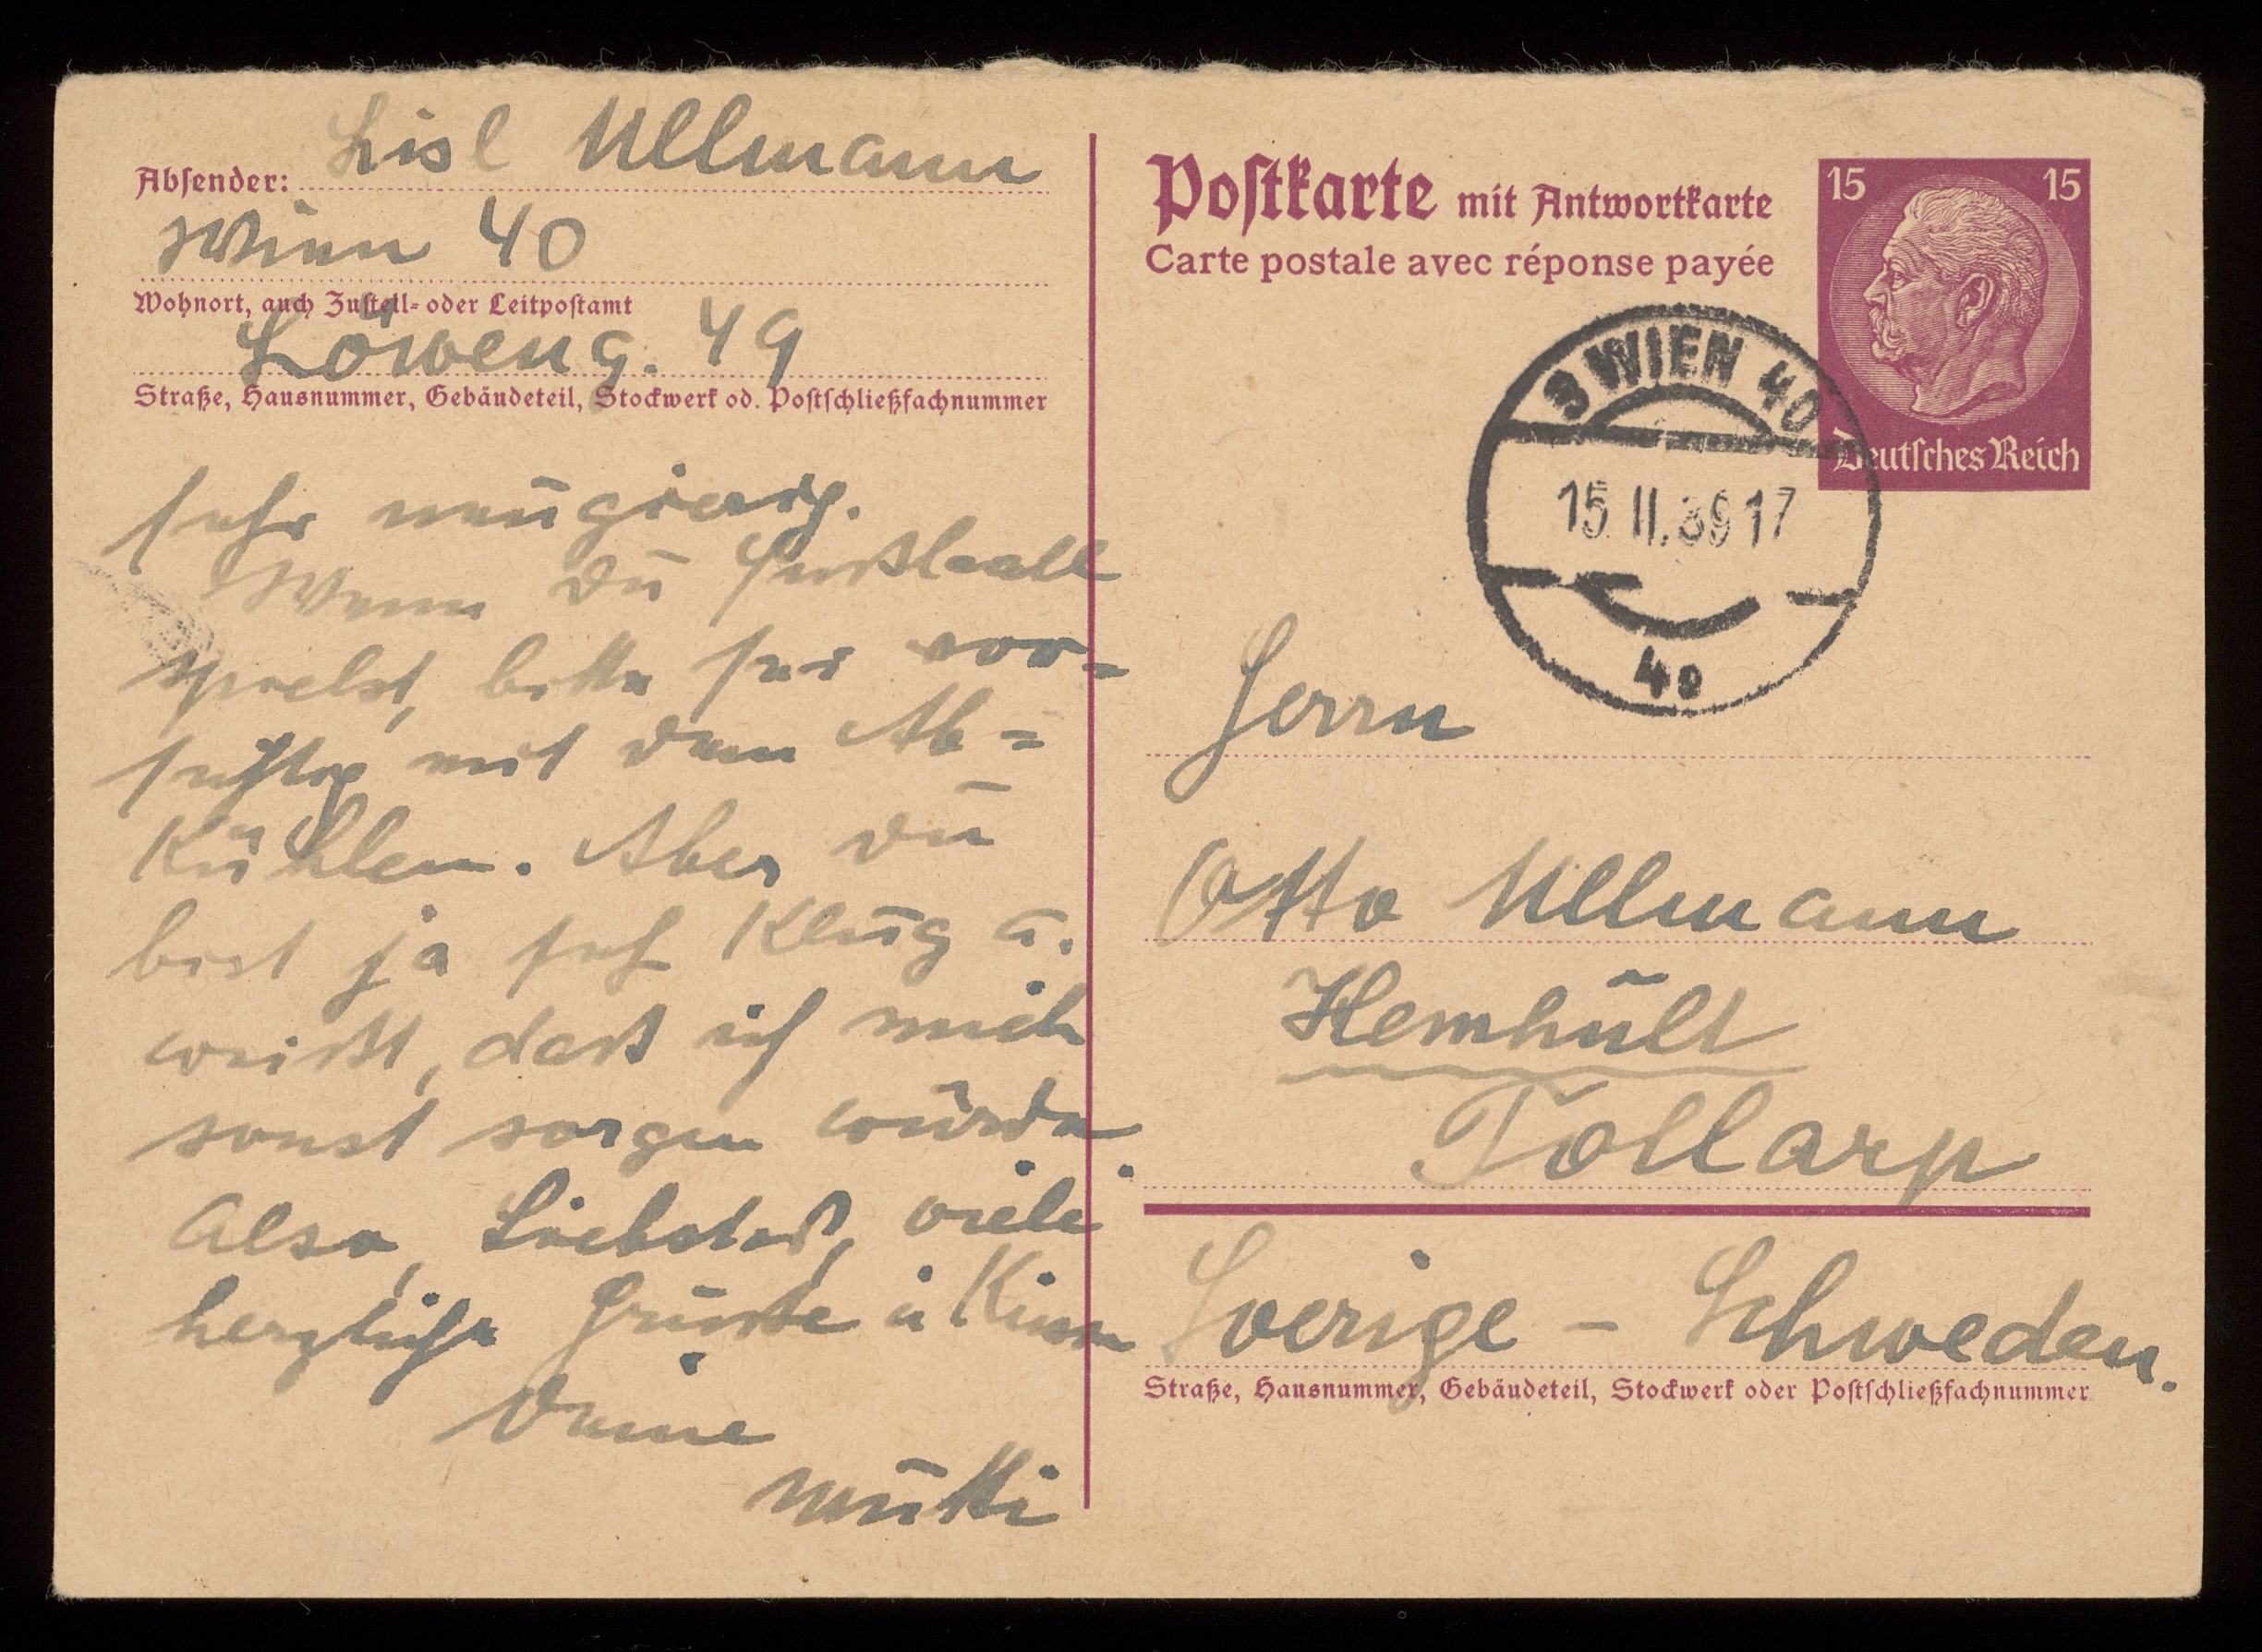 Absender: Lisl Ullmann
Wien 40
Wohnort, auch Zustell- oder Leitpostamt
Löweng. 49
Straße, Hausnummer, Gebäudeteil, Stockwerk od. Postschließfachnummer
sehr neugierig.
Wenn Du Fußball
spielst, bitte sei vor-
sichtig mit dem Ab=
kühlen. Aber Du
bist ja sehr klug u.
weißt, daß ich mich
sonst sorgen würde.
Also, Liebster, viele
herzliche Grüße u Küsse
Deine
Mutti
Postkarte mit Antwortkarte
Carte postale avec réponse payée
15 15
Deutsches Reich
9 WIEN 40
15.II.39 17
4e
Herrn
Otto Ullmann
Hemhult
Tollarp
Sverige - Schweden.
Straße, Hausnummer, Gebäudeteil, Stockwerk oder Postschließfachnummer